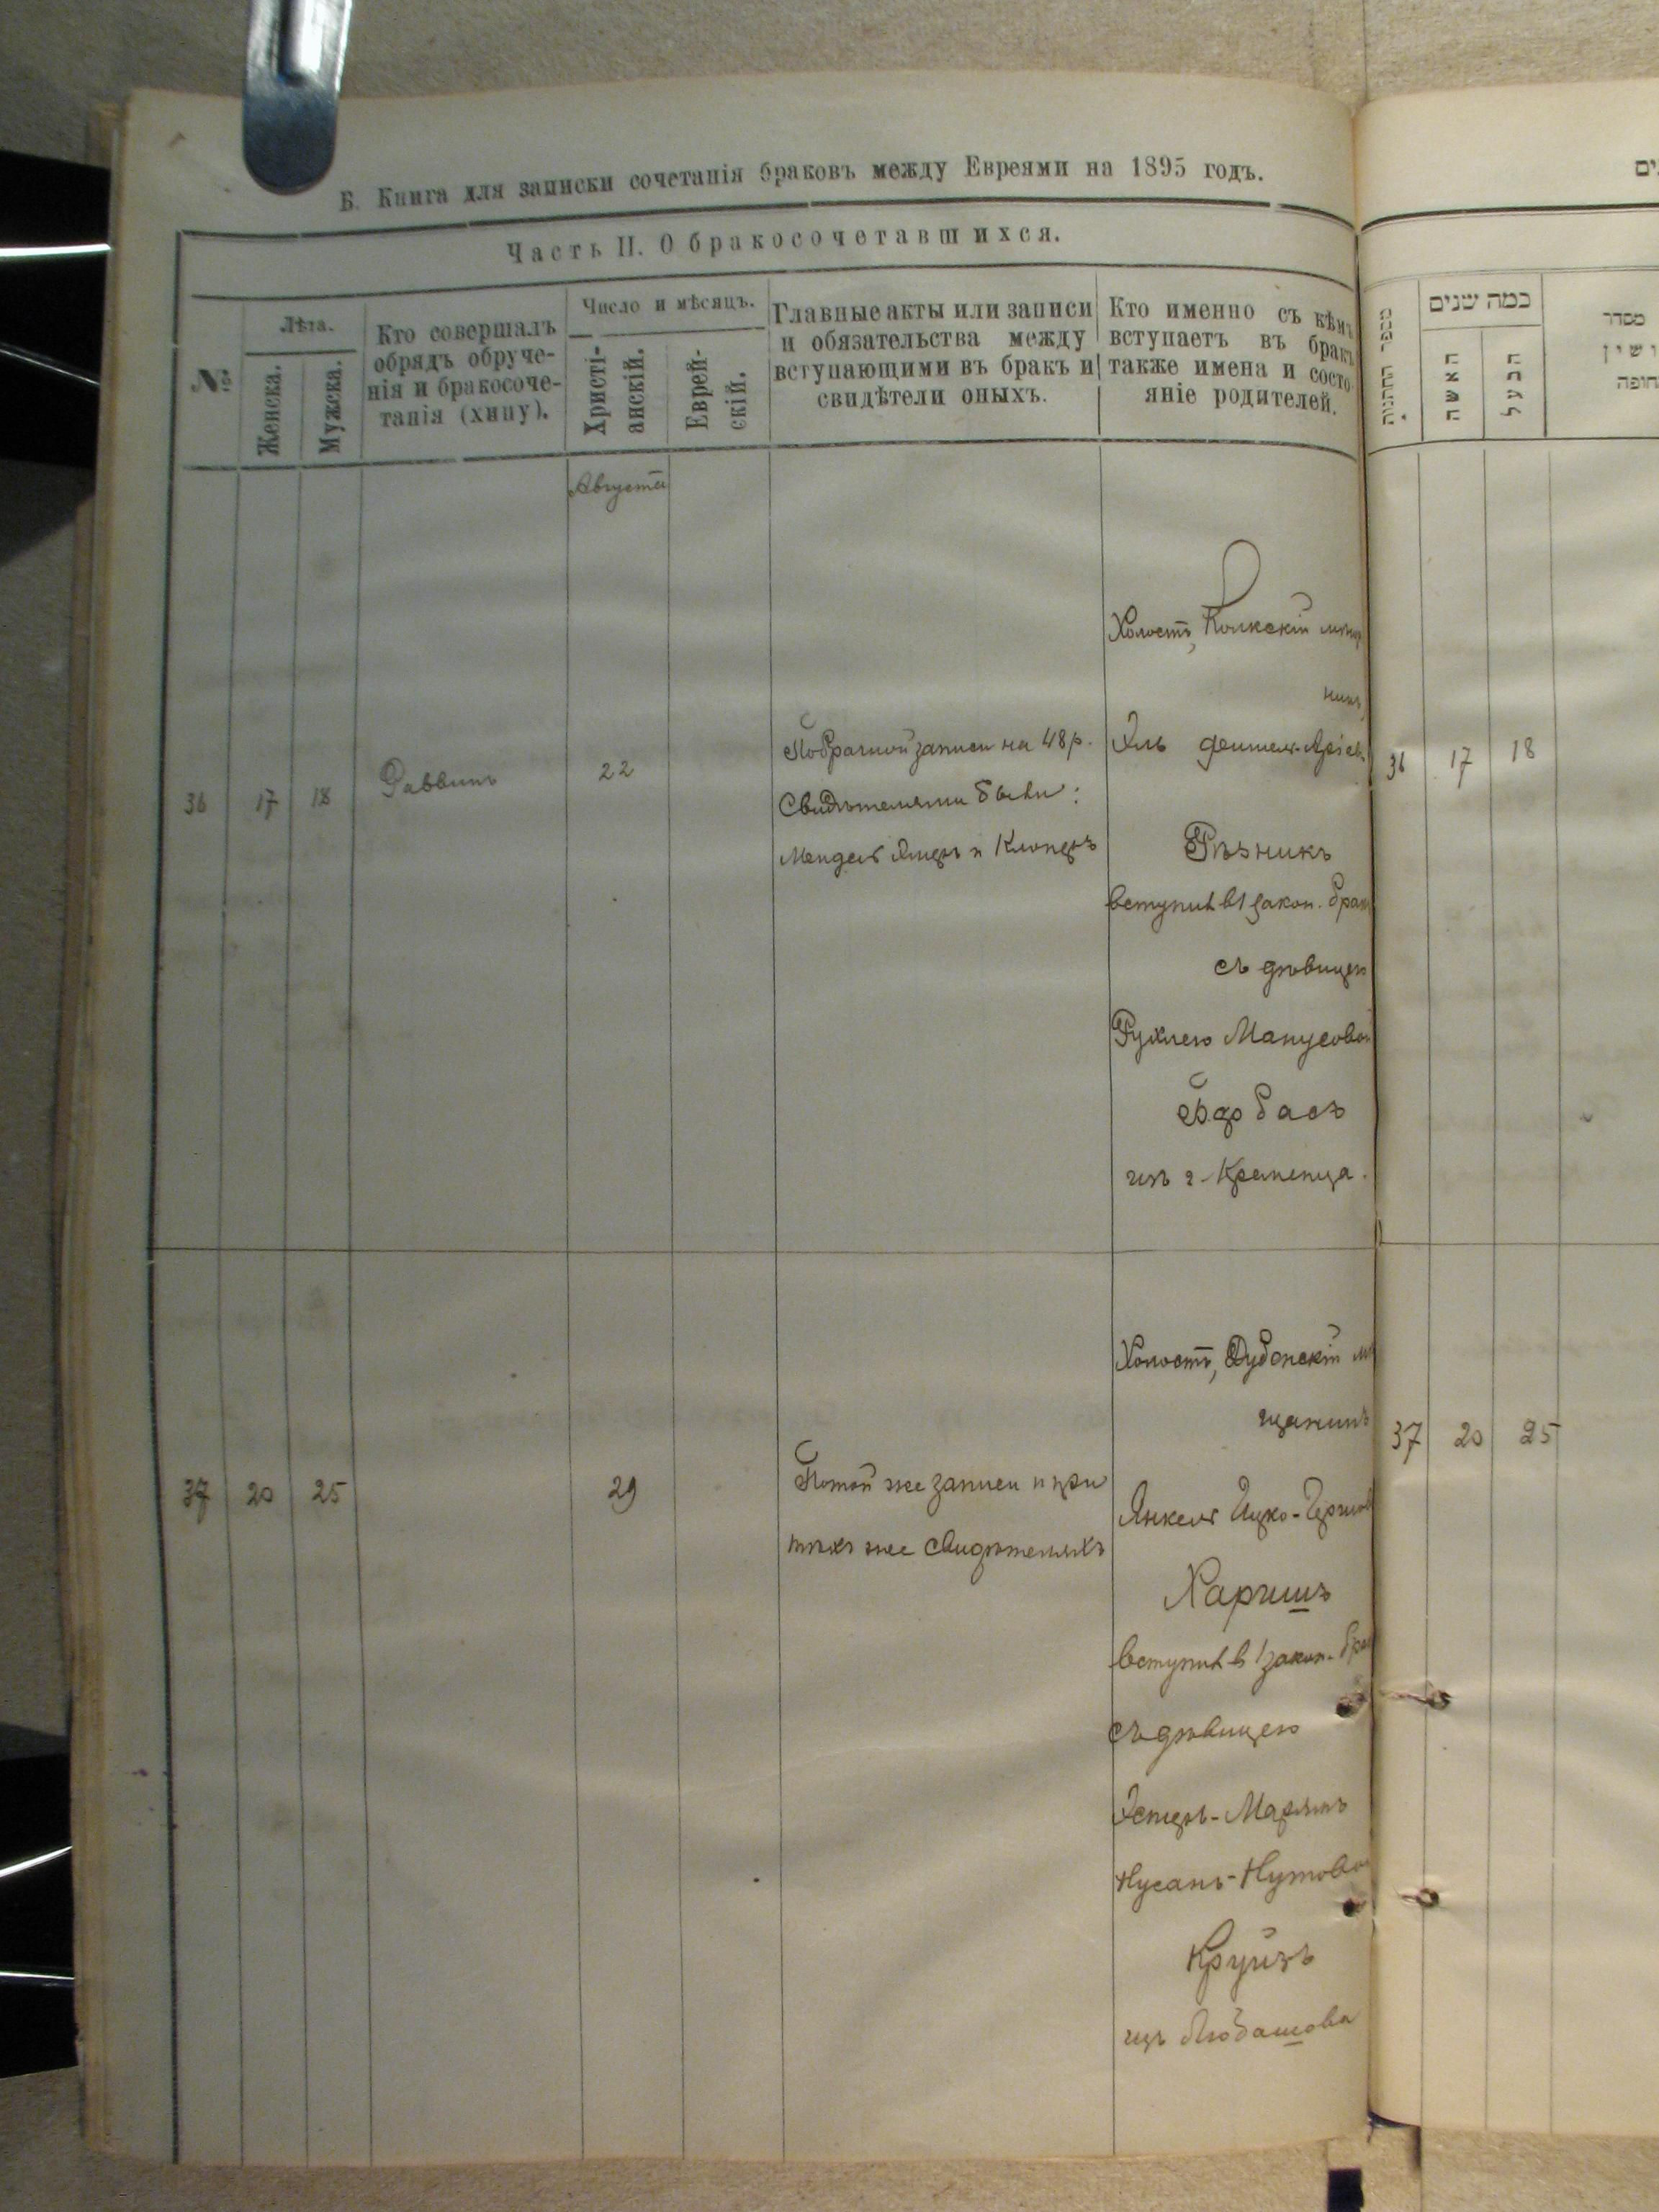 Б. Книга для записки сочетанія браковъ между Евреями на 1895 годъ.
Часть II. О бракосочетавшихся.
№
Лѣта.
Женска.
Мужска.
Кто совершалъ
обрядъ обруче-
нія и бракосоче-
танія (хипу).
Число и мѣсяцъ.
Христі-
анскій.
Еврей-
скій.
Главные акты или записи
и обязательства между
вступающими въ бракъ и
свидѣтели оныхъ.
Кто именно съ кѣмъ
вступаетъ въ бракъ
также имена и состо-
яніе родителей.
Августа
36 17 18 Раввинъ 22
По брачной записи на 48 р.
Свидѣтелями были:
Мендель и
Холостъ, Колкскій
никъ,
Эль
Рѣзникъ
вступилъ въ 1 закон. бракъ
съ дѣвицею
Рухлею Манусовой
басъ
изъ г. Кременца.
37 20 25 29
По той же записи и при
тѣхъ же свидѣтеляхъ
Холостъ, Дубенскій м
щанинъ
Янкель Ицко-
Харишъ
вступилъ въ 1 закон. бра
съ дѣвицею
Эстеръ-Марьямъ
Нусанъ-Нутово
Круизъ
изъ Любашова
ים
מספר החתונות
כמה שנים
האשה
הבעל
מסדר
ושין
חופה
36 17 18
37 20 25